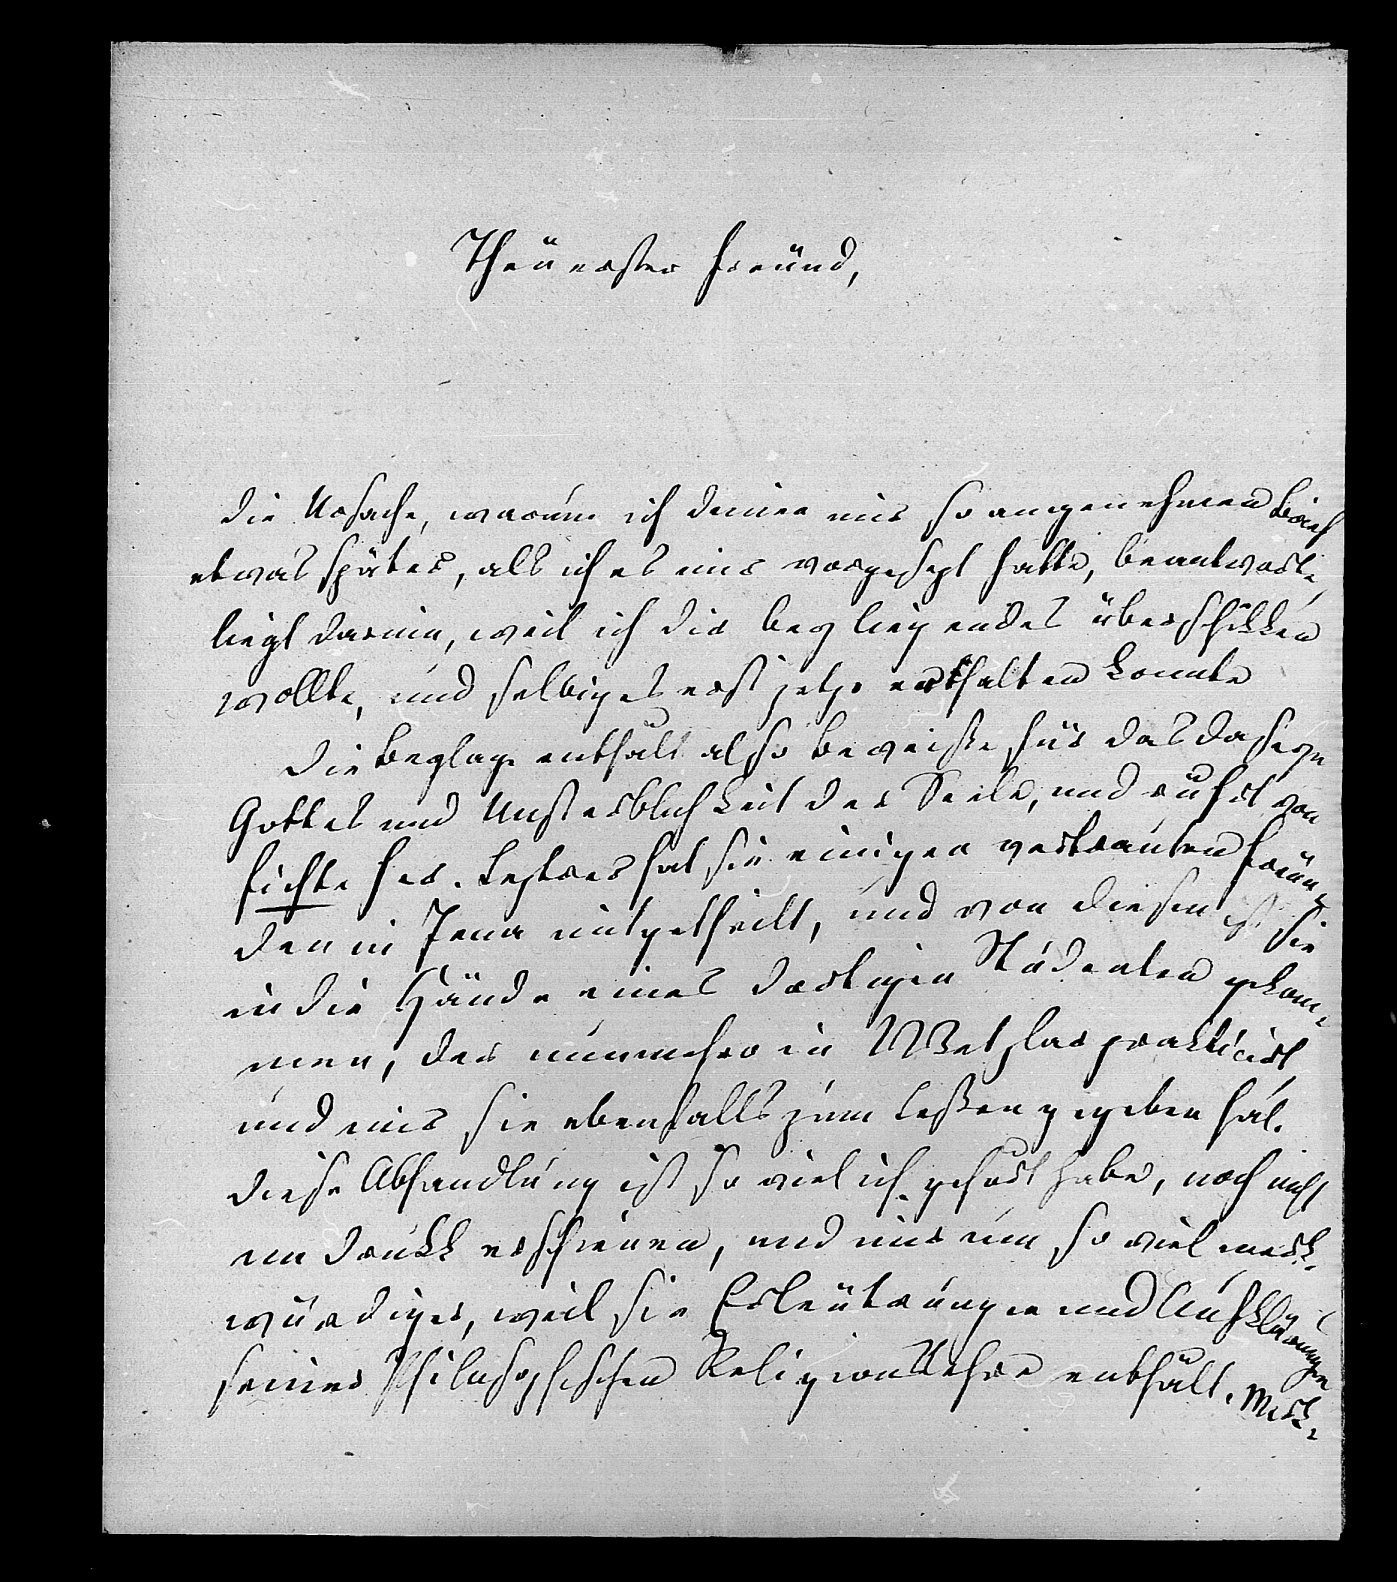 Theüerster Freünd,
die Ursache, warum ich deinen mir so angenehmen Brief
etwas später, als ich es mir vorgesezt hatte, beantworte,
liegt darinn, weil ich dir beyliegendes überschikken
wollte, und selbiges erst jetzo erhalten konnte
Die Beylage enthält also Beweiße für das Daseyn
Gottes und Unsterblichkeit der Seele, und rührt von
Fichte her. Leztrer hat sie einigen vertrauten Freün-
den in Jena mitgetheilt, und von diesen ist sie
in die Hände eines dortigen Studenten gekom-
men, der nunmehro in Wetzlar prakticirt,
und mir sie ebenfalls zum Leßen gegeben hat.
Diese Abhandlung ist so viel ich gehört habe, noch nicht
im Drukk erschienen, und mir um so viel merk-
würdiger, weil sie Erleütrungen und Aufklärungen
seiner Philosophischen Religionslehre enthält. Merk-